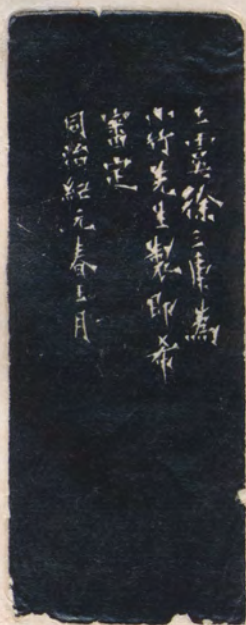 上虞徐三庚為
小竹先生製即希
審定
同治紀元春王月